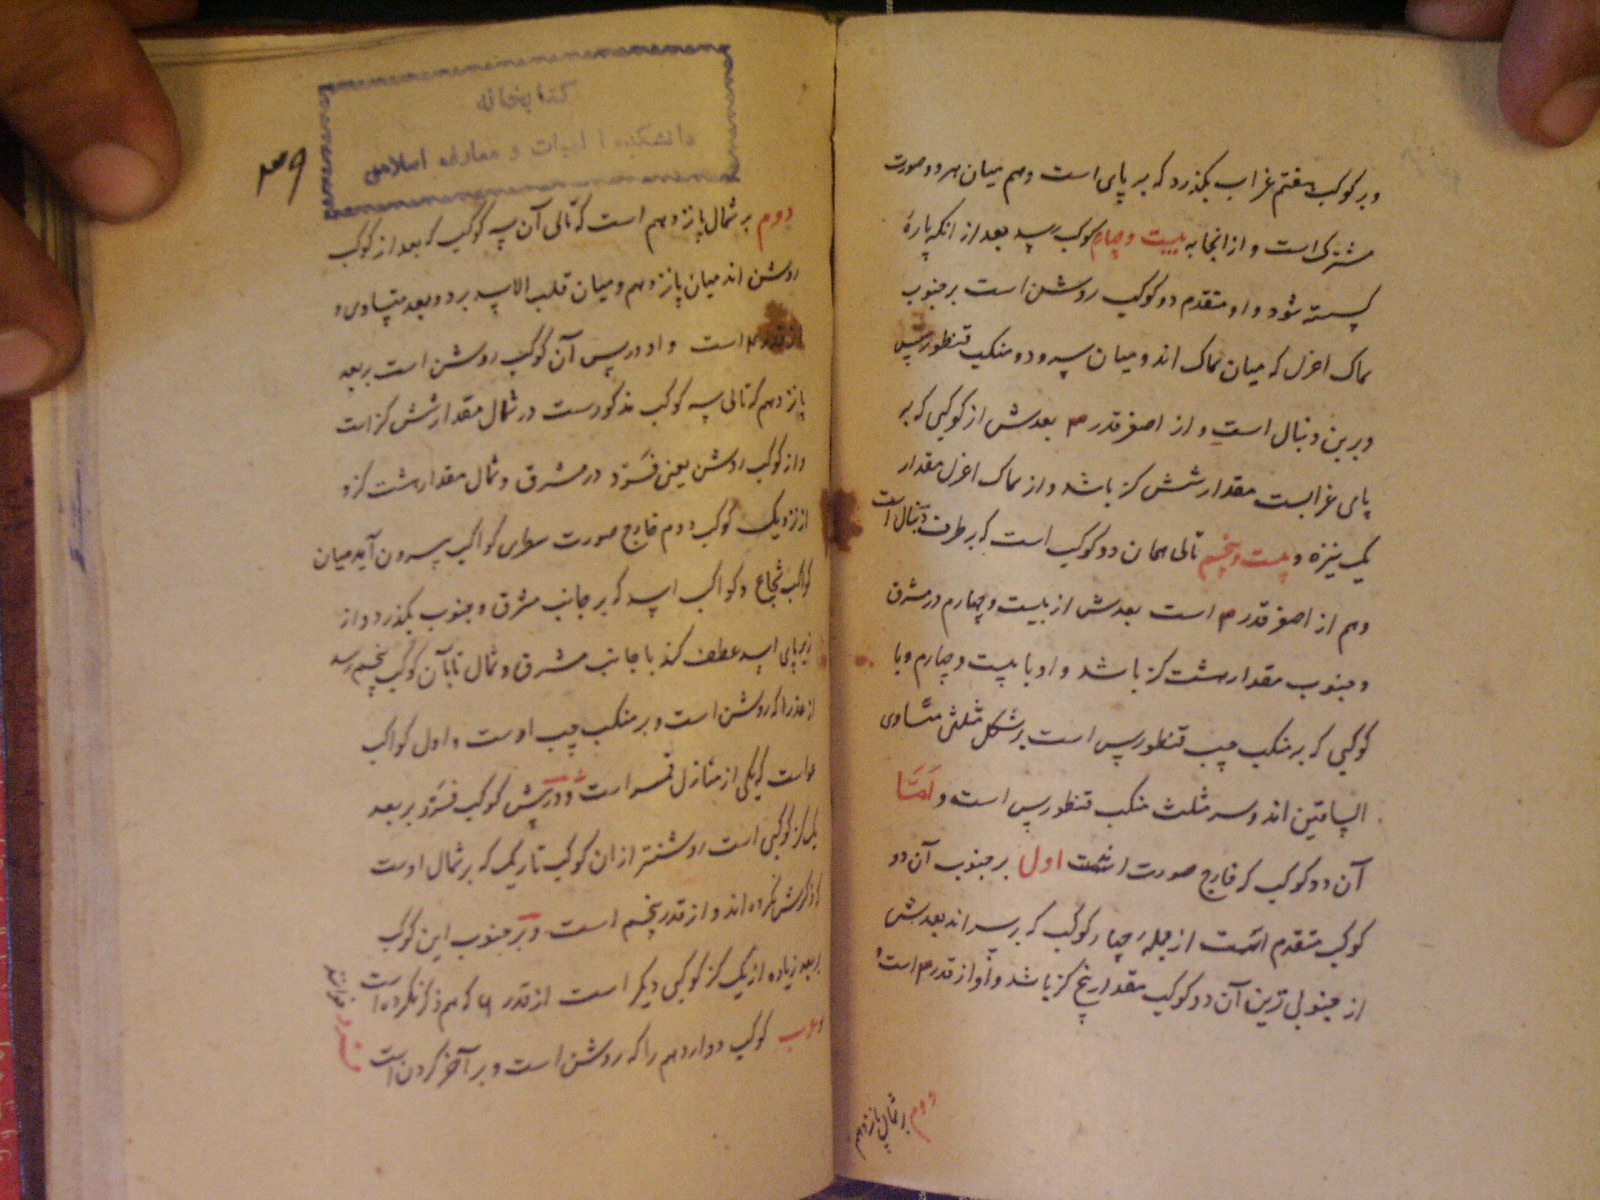 و بر کوکب هفتم غراب بگذرد که بر پای است و هم میان هر دو صورت
مشترک است و از انجا به بیست و چهارم کوکب رسد بعد از انکه پارهٔ
کسسته شود و او متقدم دو کوکب روشن است بر جنوب
سماک اعزل که میان سماک اند و میان سر و دو منکب قنطورس
و برین دنبال است و از اصغر قدر ۳ بعدش از کوکبی که بر
پای غرابست مقدار شش کز باشد و از سماک اعزل مقدار
یک نیزه و بیست و پنجم تالی همان دو کوکب است که بر طرف دنبال است
و هم از اصغر قدر ۳ است بعدش از بیست و چهارم در مشرق
و جنوب مقدار هشت کز باشد و او با بیست و چهارم و با
کوکبی که بر منکب چپ قنطورس است بر شکل مثلثی متساوی
الساقین اند و سر مثلث منکب قنطورس است و اَمَّا
آن دو کوکب که خارج صورت است اول بر جنوب آن دو
کوکب متقدم است از جملهٔ چهار کوکب که بر سر اند بعدش
از جنوبی ترین آن دو کوکب مقدار پنج کز باشد و او از قدر ۳ است
دوم بر شمال پانزدهم
۳۹
کتابخانه
دانشکده ادبیات و معارف اسلامی
دوم بر شمال پانزدهم است که تالی آن سه کوکب که بعد از کوکب
روشن اند میان پانزدهم و میان قلب الاسد برد و بعد متساوی و
از قدر است و او در پس آن کوکب روشن است ببعد
پانزدهم که تالی سه کوکب مذکورست در شمال مقدار شش کز است
و از کوکب روشن یعنی فَرْد در مشرق و شمال مقدار هشت کز و
از نزدیک کوکب دوم خارج صورت سطری کواکب بیرون آید میان
کواکب شجاع و کواکب اسد که بر جانب مشرق و جنوب بگذرد و از
زیر پای اسد عطف کند با جانب مشرق و شمال تا بآن کوکب پنجم رسد
از عذرا که روشن است و بر منکب چپ اوست و اول کواکب
عواست که یکی از منازل قمر است و در پیش کوکب فَرْد بر بعد
یک کز کوکبی است روشنتر از ان کوکب تاریک که بر شمال اوست
که ذکرش نکرده اند و از قدر پنجم است و بر جنوب این کوکب
بر بعد زیاده از یک کز کوکبی دیگر است از قدر ۶ که هم ذکر نکرده است
و عرب کوکب دوازدهم را که روشن است و بر آخر کردن است
فرد خوانند